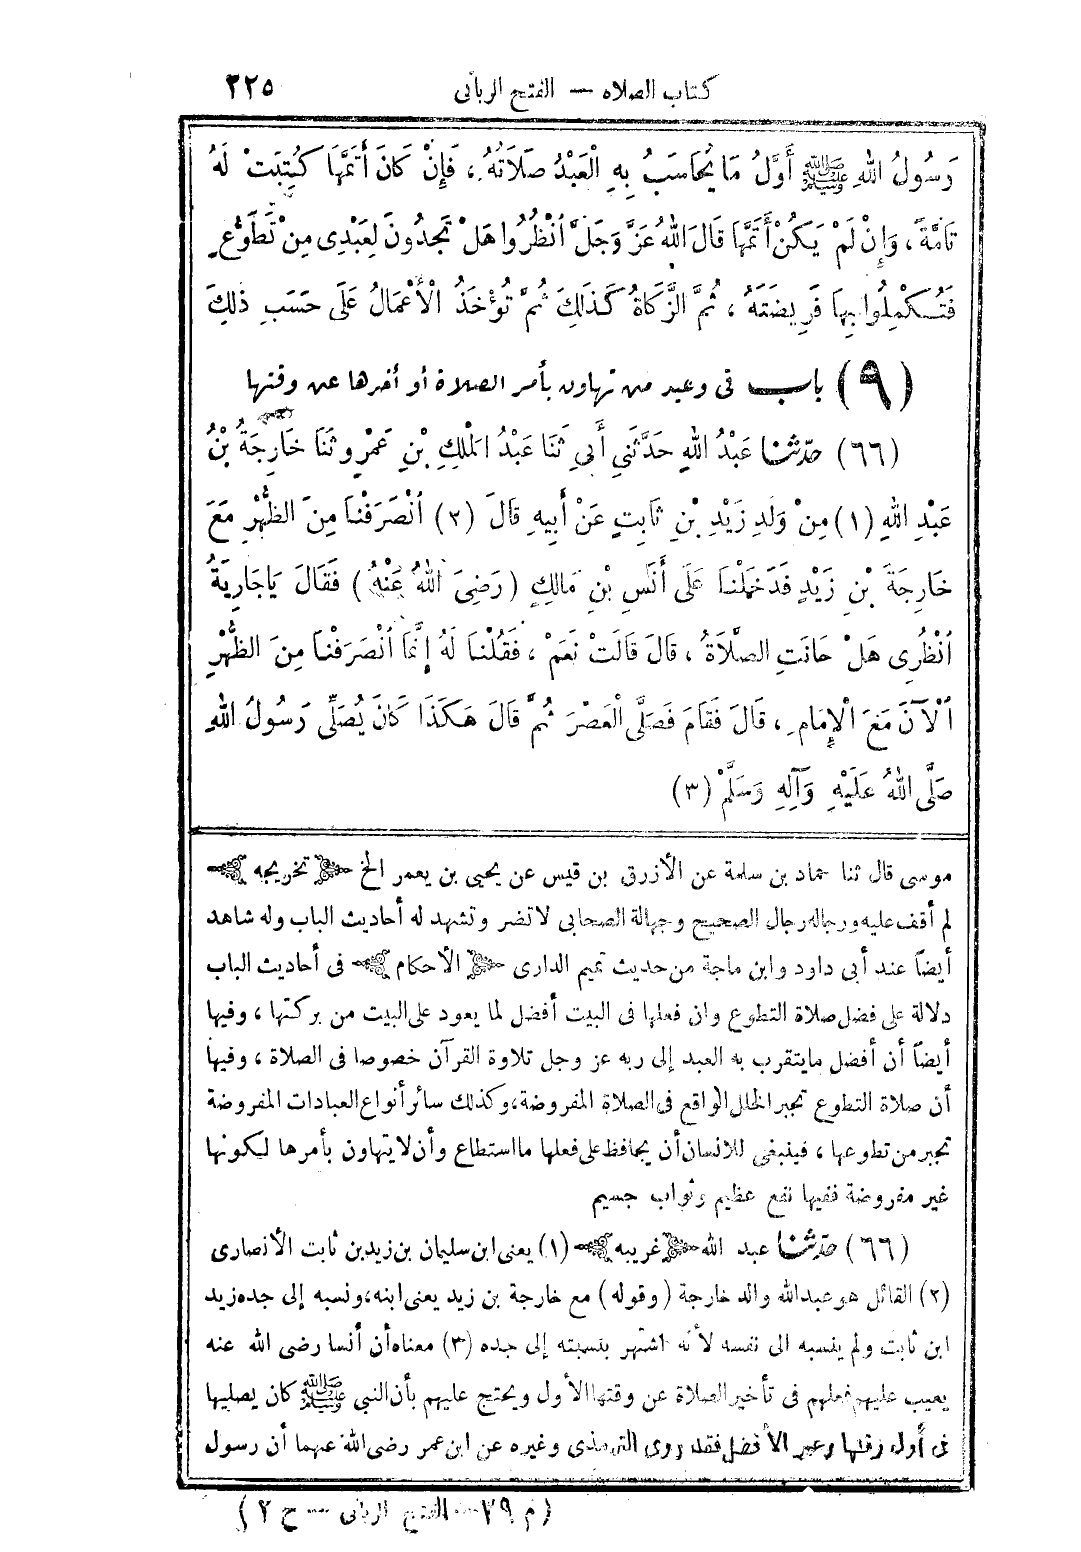 كتاب الصلاه — الفتح الربانى ٢٢٥
رَسُولُ اللهِ ﷺ أَوَّلُ مَا يُحَاسَبُ بِهِ الْعَبْدُ صَلَاتُهُ ، فَإِنْ كَانَ أَتَمَّهَا كُتِبَتْ لَهُ
تَامَّةً ، وَإِنْ لَمْ يَكُنْ أَتَمَّهَا قَالَ اللهُ عَزَّ وَجَلَّ اُنْظُرُوا هَلْ تَجِدُونَ لِعَبْدِى مِنْ تَطَوُّعٍ
فَتُكْمِلُوا بِهَا فَرِيضَتَهُ ، ثُمَّ الزَّكَاةُ كَذَلِكَ ثُمَّ تُؤْخَذُ الْأَعْمَالُ عَلَى حَسَبِ ذَلِكَ
(٩) باب فى وعيد من تهاون بأمر الصلاة أو أخرها عن وقتها
(٦٦) حدّثنا عَبْدُ اللهِ حَدَّثَنِي أَبِي ثَنَا عَبْدُ الْمَلِكِ بْنِ عَمْرٍو ثَنَا خَارِجَةُ بْنُ
عَبْدِ اللهِ (١) مِنْ وَلَدِ زَيْدِ بْنِ ثَابِتٍ عَنْ أَبِيهِ قَالَ (٢) اُنْصَرَفْنَا مِنَ الظُّهْرِ مَعَ
خَارِجَةَ بْنِ زَيْدٍ فَدَخَلْنَا عَلَى أَنَسِ بْنِ مَالِكٍ (رَضِىَ اللهُ عَنْهُ) فَقَالَ يَا جَارِيَةُ
اُنْظُرِى هَلْ حَانَتِ الصَّلَاةُ ، قَالَ قَالَتْ نَعَمْ ، فَقُلْنَا لَهُ إِنَّمَا اُنْصَرَفْنَا مِنَ الظُّهْرِ
اَلْآنَ مَعَ الْإِمَامِ ، قَالَ فَقَامَ فَصَلَّى الْعَصْرَ ثُمَّ قَالَ هَكَذَا كَانَ يُصَلِّى رَسُولُ اللهِ
صَلَّى اللهُ عَلَيْهِ وَآلِهِ وَسَلَّمْ (٣)
موسى قال ثنا حماد بن سلمة عن الأزرق بن قيس عن يحيى بن يعمر الخ ﴿تخريجه﴾
لم أقف عليه ورجاله رجال الصحيح وجهالة الصحابى لا تضر وتشهد له أحاديث الباب وله شاهد
أيضاً عند أبى داود وابن ماجة من حديث تميم الدارى ﴿الأحكام﴾ فى أحاديث الباب
دلالة على فضل صلاة التطوع وان فعلها فى البيت أفضل لما يعود على البيت من بركتها ، وفيها
أيضاً أن أفضل ما يتقرب به العبد إلى ربه عز وجل تلاوة القرآن خصوصا فى الصلاة ، وفيها
أن صلاة التطوع تجبر الخلل الواقع فى الصلاة المفروضة، وكذلك سائر أنواع العبادات المفروضة
تجبر من تطوعها ، فينبغى للانسان أن يحافظ على فعلها ما استطاع وأن لا يتهاون بأمرها لكونها
غير مفروضة ففيها نفع عظيم وثواب جسيم
(٦٦) حدّثنا عبد الله ﴿غريبه﴾ (١) يعنى ابن سليمان بن زيد بن ثابت الأنصارى
(٢) القائل هو عبد الله والد خارجة (وقوله) مع خارجة بن زيد يعنى ابنه، ونسبه إلى جده زيد
ابن ثابت ولم ينسبه الى نفسه لأنه اشتهر بنسبته إلى جده (٣) معناه أن أنسا رضى الله عنه
يعيب عليهم فعلهم فى تأخير الصلاة عن وقتها الأول ويحتج عليهم بأن النبي ﷺ كان يصليها
فى أول وقتها وهو الأفضل فقد روى الترمذى وغيره عن ابن عمر رضى الله عنهما أن رسول
(م ٢٩ — الفتح الربانى — ج ٢)